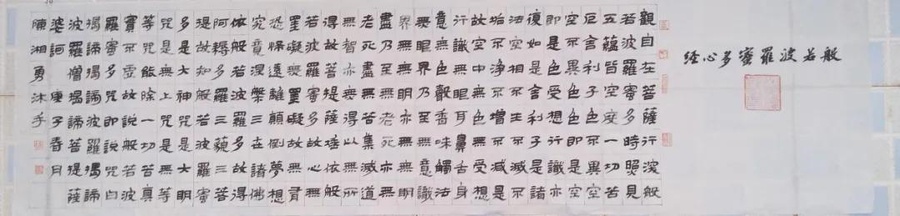 般若波羅蜜多心經
觀自在菩薩行深般
若波羅蜜多時照見
五蘊皆空度一切苦
厄舍利子色不異空
空不異色色即是空空
即是色受想行識亦
復如是舍利子是諸
法空相不生不滅不
垢不淨不增不減是
故空中無色無受想
行識無眼耳鼻舌身
意無色聲香味觸法
無眼界乃至無意識
界無無明亦無無明
盡乃至無老死亦無
老死盡無苦集滅道
無智亦無得以無所
得故菩提薩埵依般
若波羅蜜多故心無
罣礙無罣礙故無有
恐怖遠離顛倒夢想
究竟涅槃三世諸佛
依般若波羅蜜多故得
阿耨多羅三藐三菩
提故知般若波羅蜜
多是大神咒是大明
咒是無上咒是無等
等咒能除一切苦真
實不虛故說般若波
羅蜜多咒即說咒曰
揭諦揭諦波羅揭諦
波羅僧揭諦菩提薩
婆訶 庚子春月
陳湘勇沐手